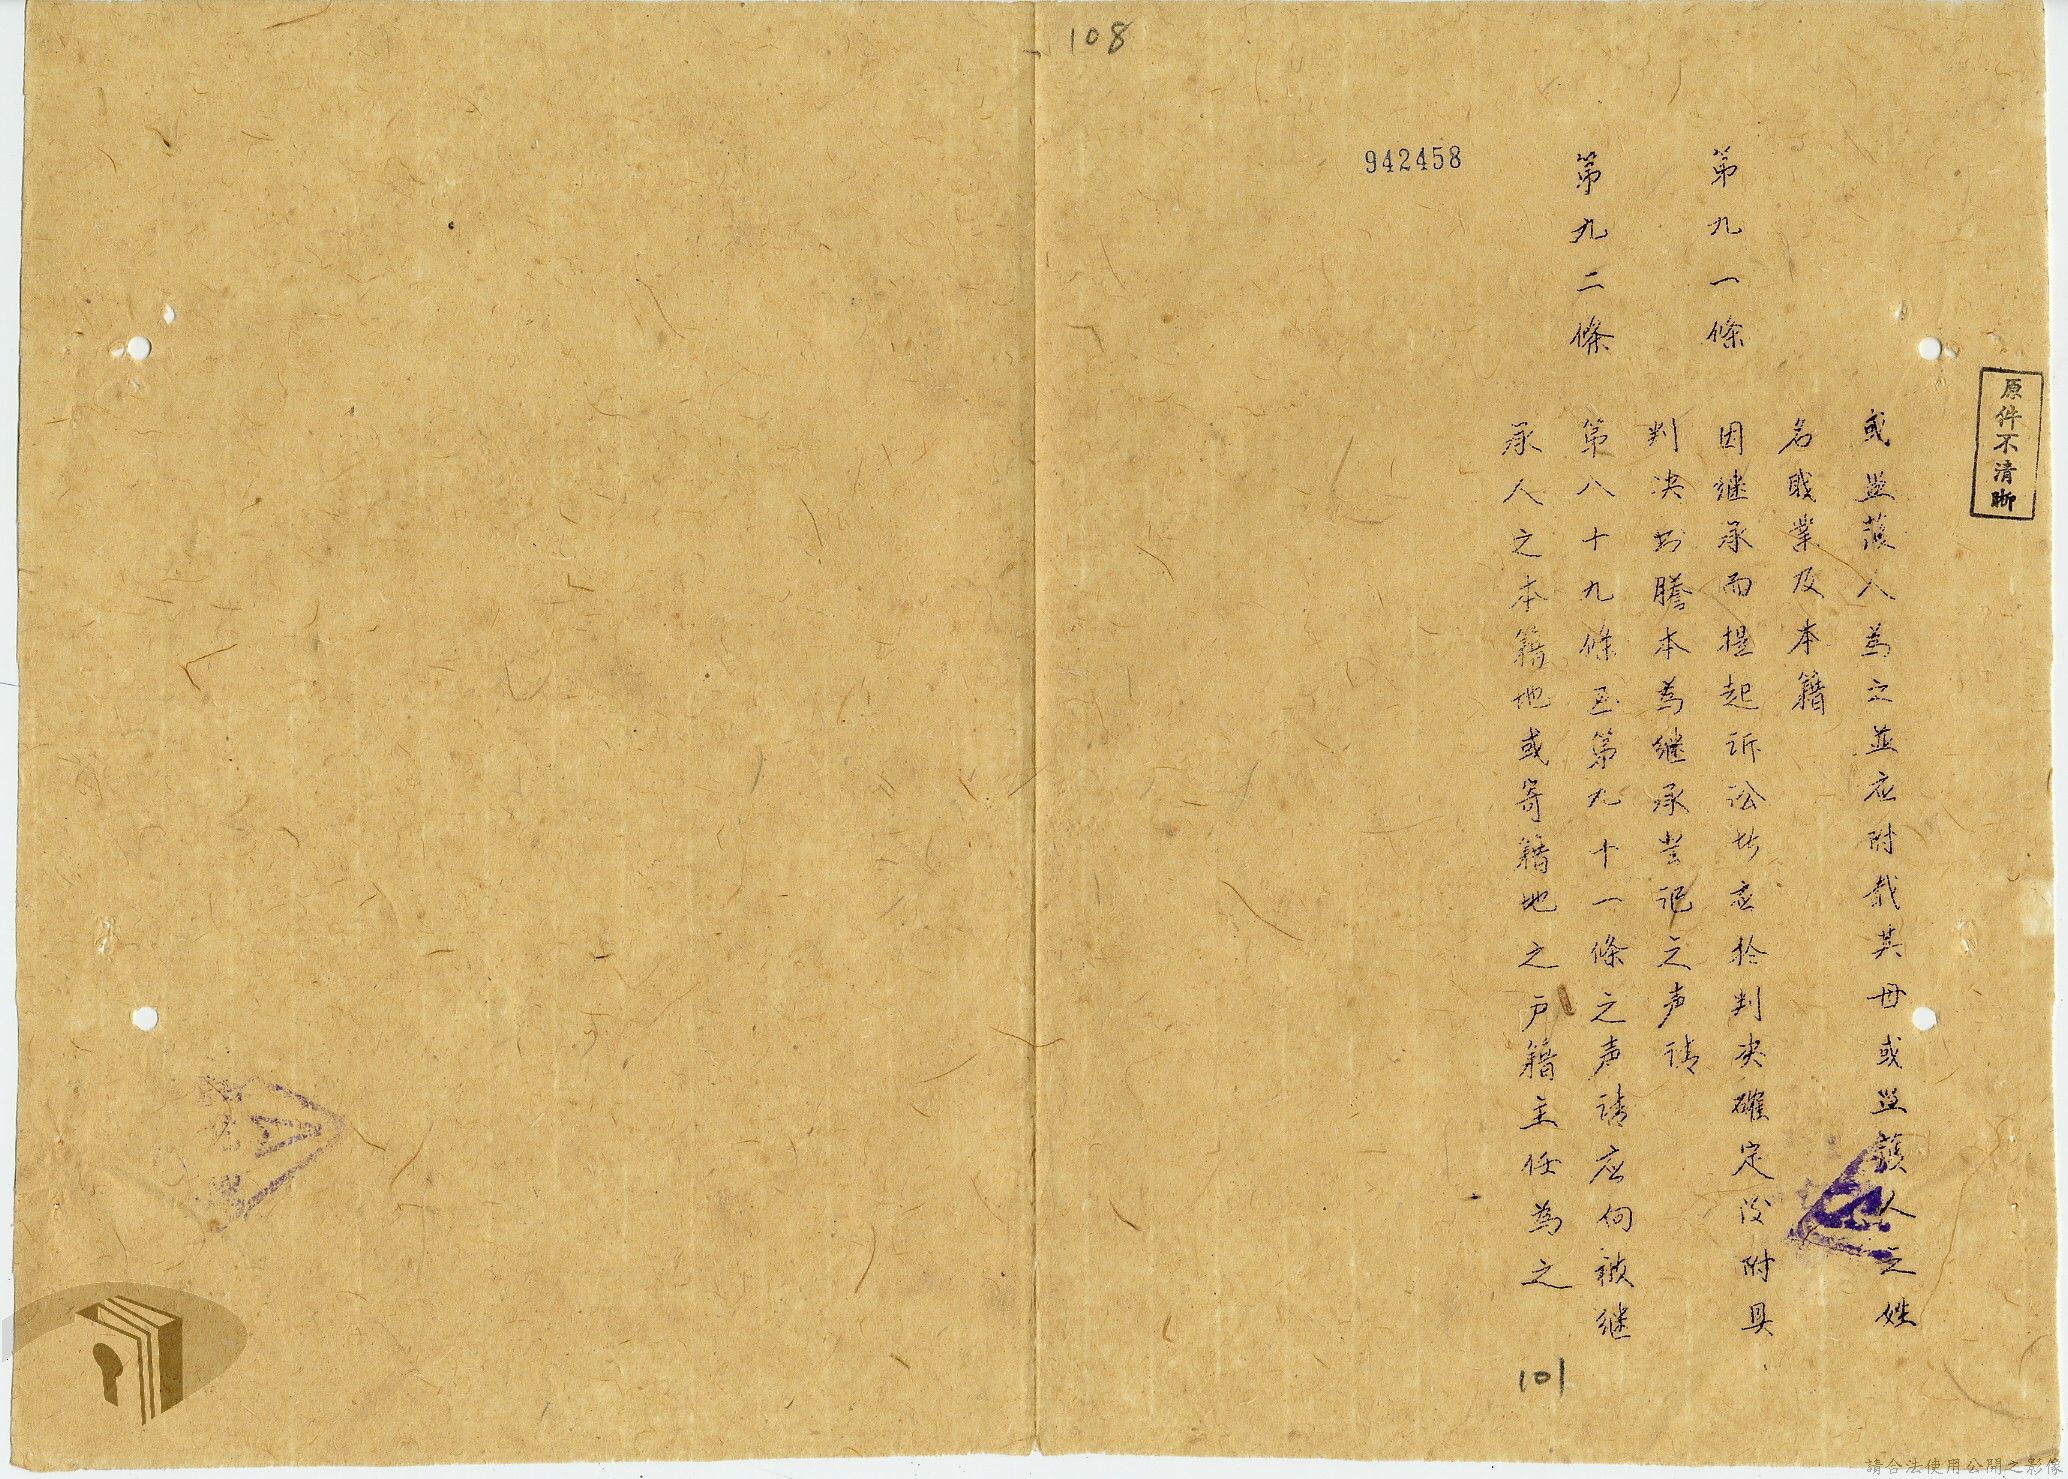 108
942458
原件不清晰
或監護人為之並应附載其母或監護人之姓
名職業及本籍
第九一條 因继承而提起訴訟者应於判决確定後附具
判决书謄本為继承登記之声請
第九二條 第八十九條至第九十一條之声請应向被继
承人之本籍地或寄籍地之户籍主任為之
101
請合法使用公開之影像